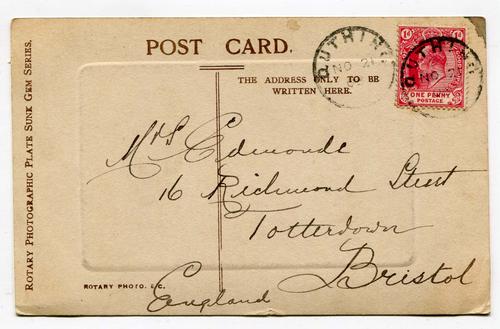 ROTARY PHOTOGRAPHIC PLATE SUNK GEM SERIES.
POST CARD.
THE ADDRESS ONLY TO BE
WRITTEN HERE.
OUTHING
NO 21
OUTHING
NO 21
1d 1d
ONE PENNY
POSTAGE
Mrs Edmonds
16 Richmond Street
Totterdown
Bristol
England
ROTARY PHOTO. E.C.